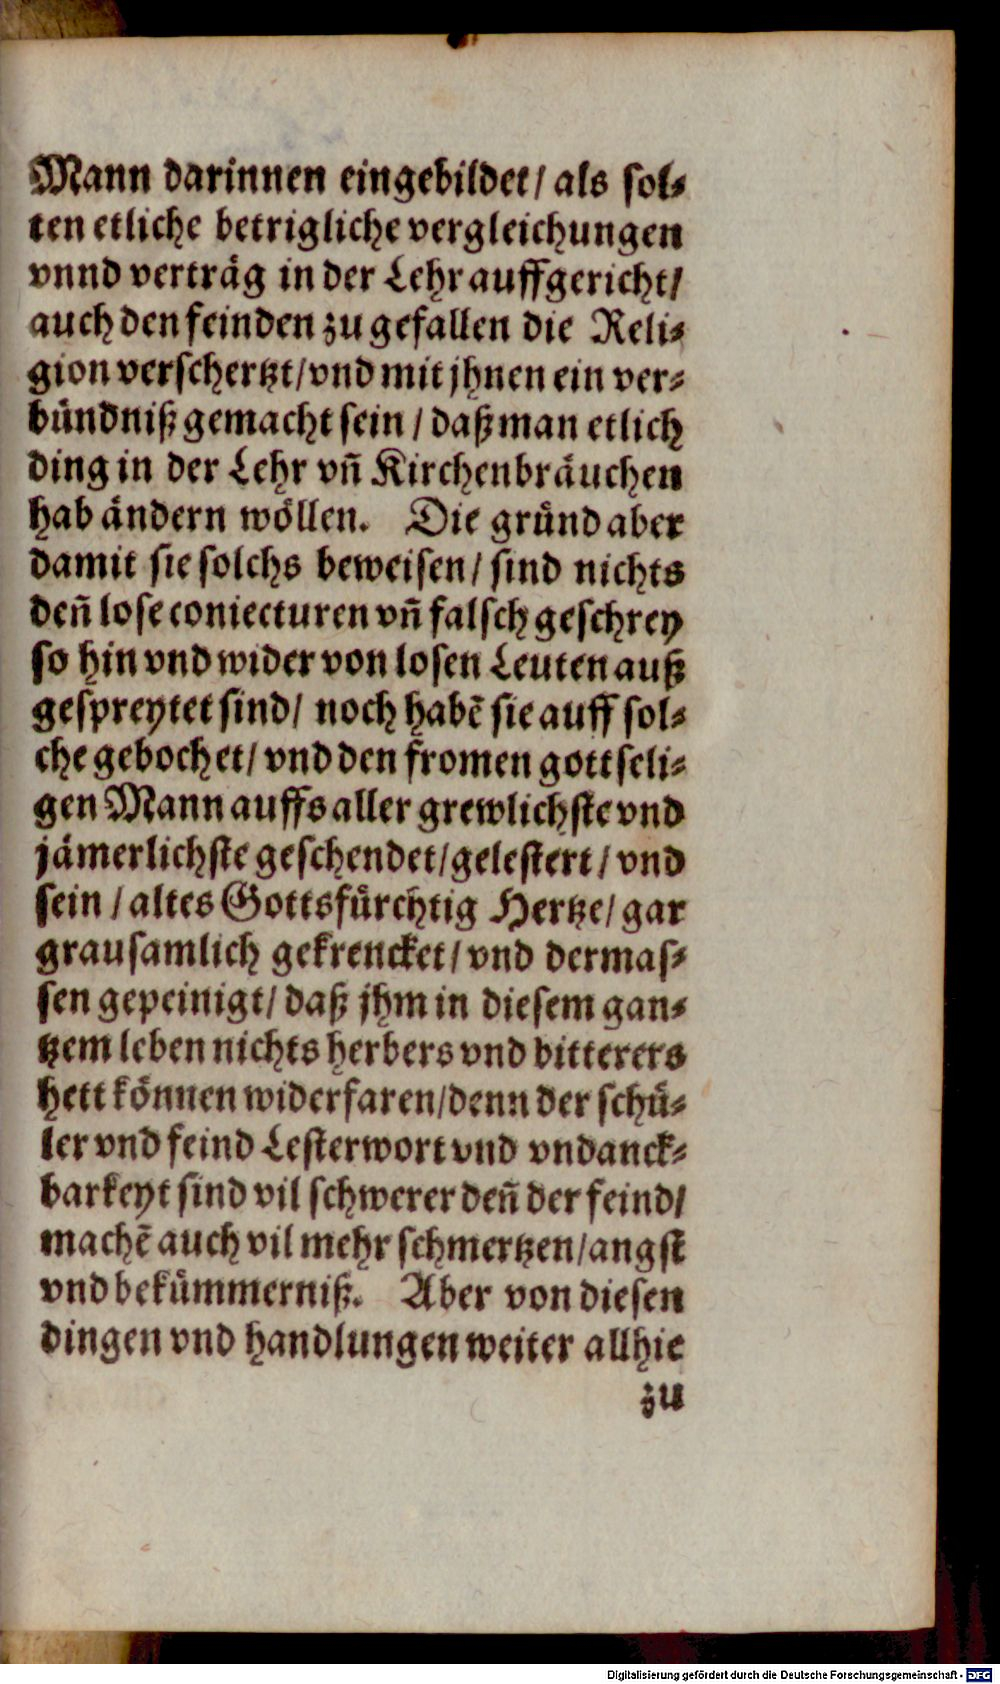 Mann darinnen eingebildet/ als sol⸗
ten etliche betrigliche vergleichungen
vnnd verträg in der Lehr auffgericht/
auch den feinden zu gefallen die Reli⸗
gion verschertzt/ vnd mit jhnen ein ver⸗
bündniß gemacht sein / daß man etlich
ding in der Lehr vñ Kirchenbräuchen
hab ändern wöllen. Die gründ aber
damit sie solchs beweisen/ sind nichts
deñ lose coniecturen vñ falsch geschrey
so hin vnd wider von losen Leuten auß
gespreytet sind/ noch habē sie auff sol⸗
che gebochet/ vnd den fromen gottseli⸗
gen Mann auffs aller grewlichste vnd
jämerlichste geschendet/ gelestert/ vnd
sein / altes Gottsfürchtig Hertze/ gar
grausamlich gekrencket/ vnd dermas⸗
sen gepeinigt/ daß jhm in diesem gan⸗
tzem leben nichts herbers vnd bitterers
hett können widerfaren/ denn der schü⸗
ler vnd feind Lesterwort vnd vndanck⸗
barkeyt sind vil schwerer deñ der feind/
machē auch vil mehr schmertzen/ angst
vnd bekümmerniß. Aber von diesen
dingen vnd handlungen weiter allhie
zu
Digitalisierung gefördert durch die Deutsche Forschungsgemeinschaft - DFG